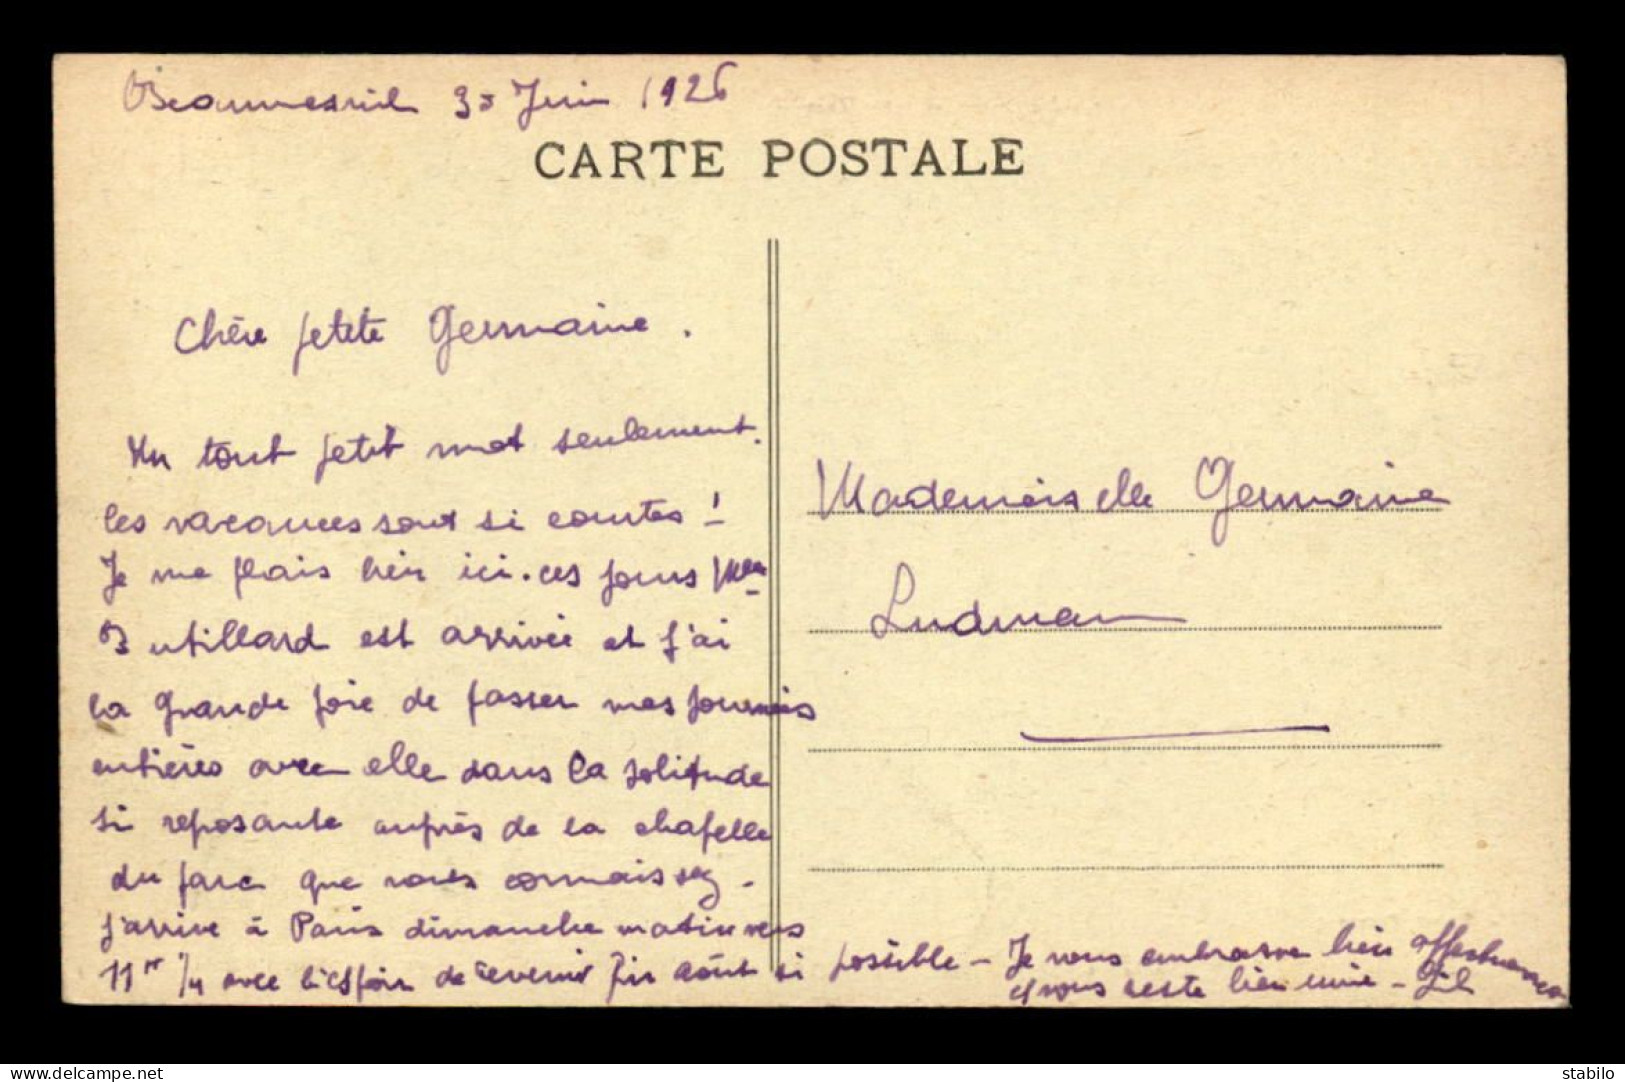 Beaumesnil 30 Juin 1926
CARTE POSTALE
Chère petite Germaine.
Un tout petit mot seulement.
les vacances sont si courtes !
Je me plais bien ici. ces jours Mme
Butillard est arrivée et j'ai
la grande joie de passer mes journées
entières avec elle dans la solitude
si reposante auprès de la chapelle
du parc que vous connaissez -
j'arrive à Paris dimanche matin vers
11h 1/4 avec l'espoir de revenir fin août si possible - Je vous embrasse bien affectueusement
et vous reste bien unie -
Mademoiselle Germaine
Ludman
www.delcampe.net
stabilo